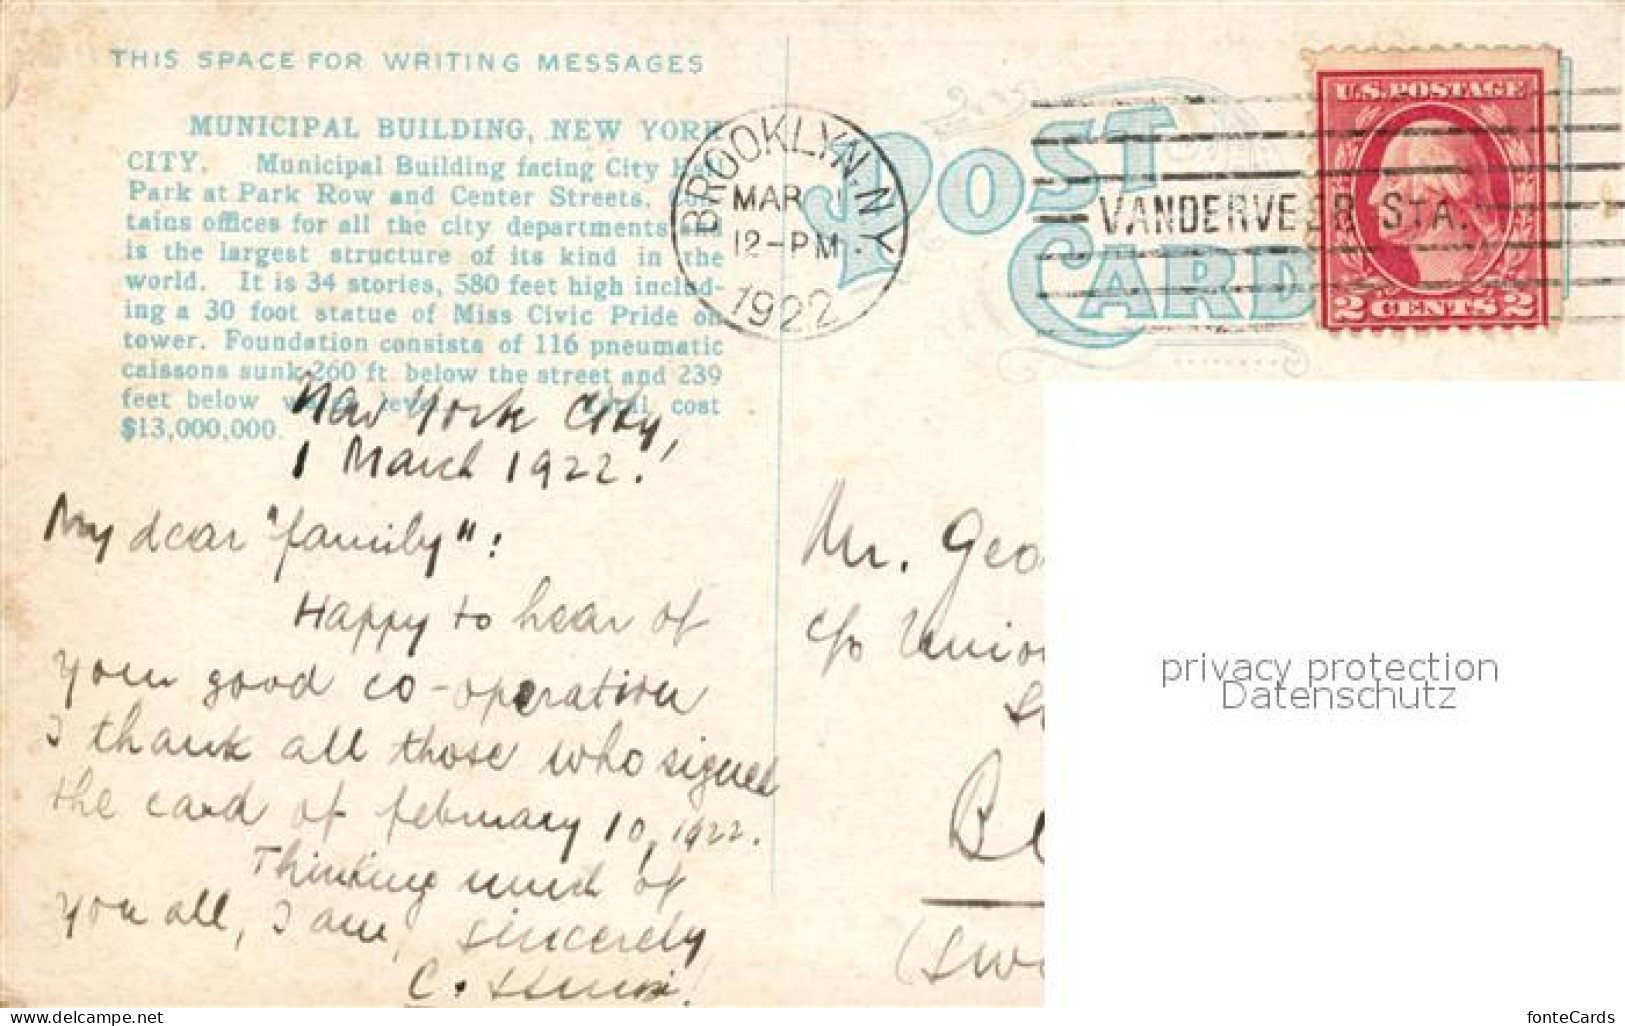 THIS SPACE FOR WRITING MESSAGES
MUNICIPAL BUILDING, NEW YORK
CITY. Municipal Building facing City
Park at Park Row and Center Streets.
tains offices for all the city departments
is the largest structure of its kind in the
world. It is 34 stories, 580 feet high includ-
ing a 30 foot statue of Miss Civic Pride on
tower. Foundation consists of 116 pneumatic
caissons sunk 260 ft. below the street and 239
feet below cost
$13,000,000.
New York City,
1 March 1922.
My dear "family":
Happy to hear of
your good co-operation
I thank all those who signed
the card of february 10, 1922.
Thinking much of
you all, I am, sincerely
C.
BROOKLYN, N.Y.
MAR 1
12-PM
1922
POST
CARD
VANDERVEER STA.
U.S. POSTAGE
2 CENTS 2
Mr. Geo
c/o Union
Be
(Sw
privacy protection
Datenschutz
www.delcampe.net
fonteCards